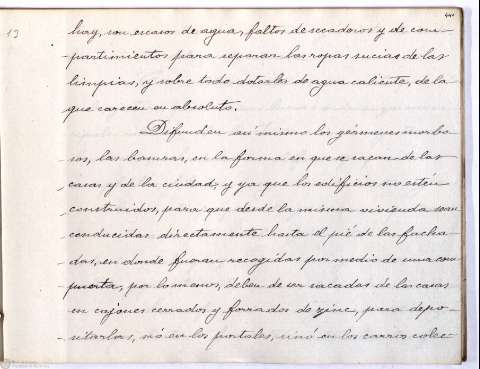 13
hay, son escasos de agua, faltos de secadores y de com-
-partimientos para separar las ropas sucias de las
limpias, y sobre todo dotarles de agua caliente, de la
que carecen en absoluto.
Difunden asi mismo los gérmenes morbo-
sos, las basuras, en la forma en que se sacan de las
casas y de la ciudad; y ya que los edificios no estén
construidos, para que desde la misma vivienda sean
conducidas directamente hasta el pié de las facha-
-das, en donde fueran recogidas por medio de una com-
puerta, por lo menos, deben de ser sacadas de las casas
en cajones cerrados y forrados de zinc, para depo-
-sitarlas, nó en los portales, sinó en los carros colec-